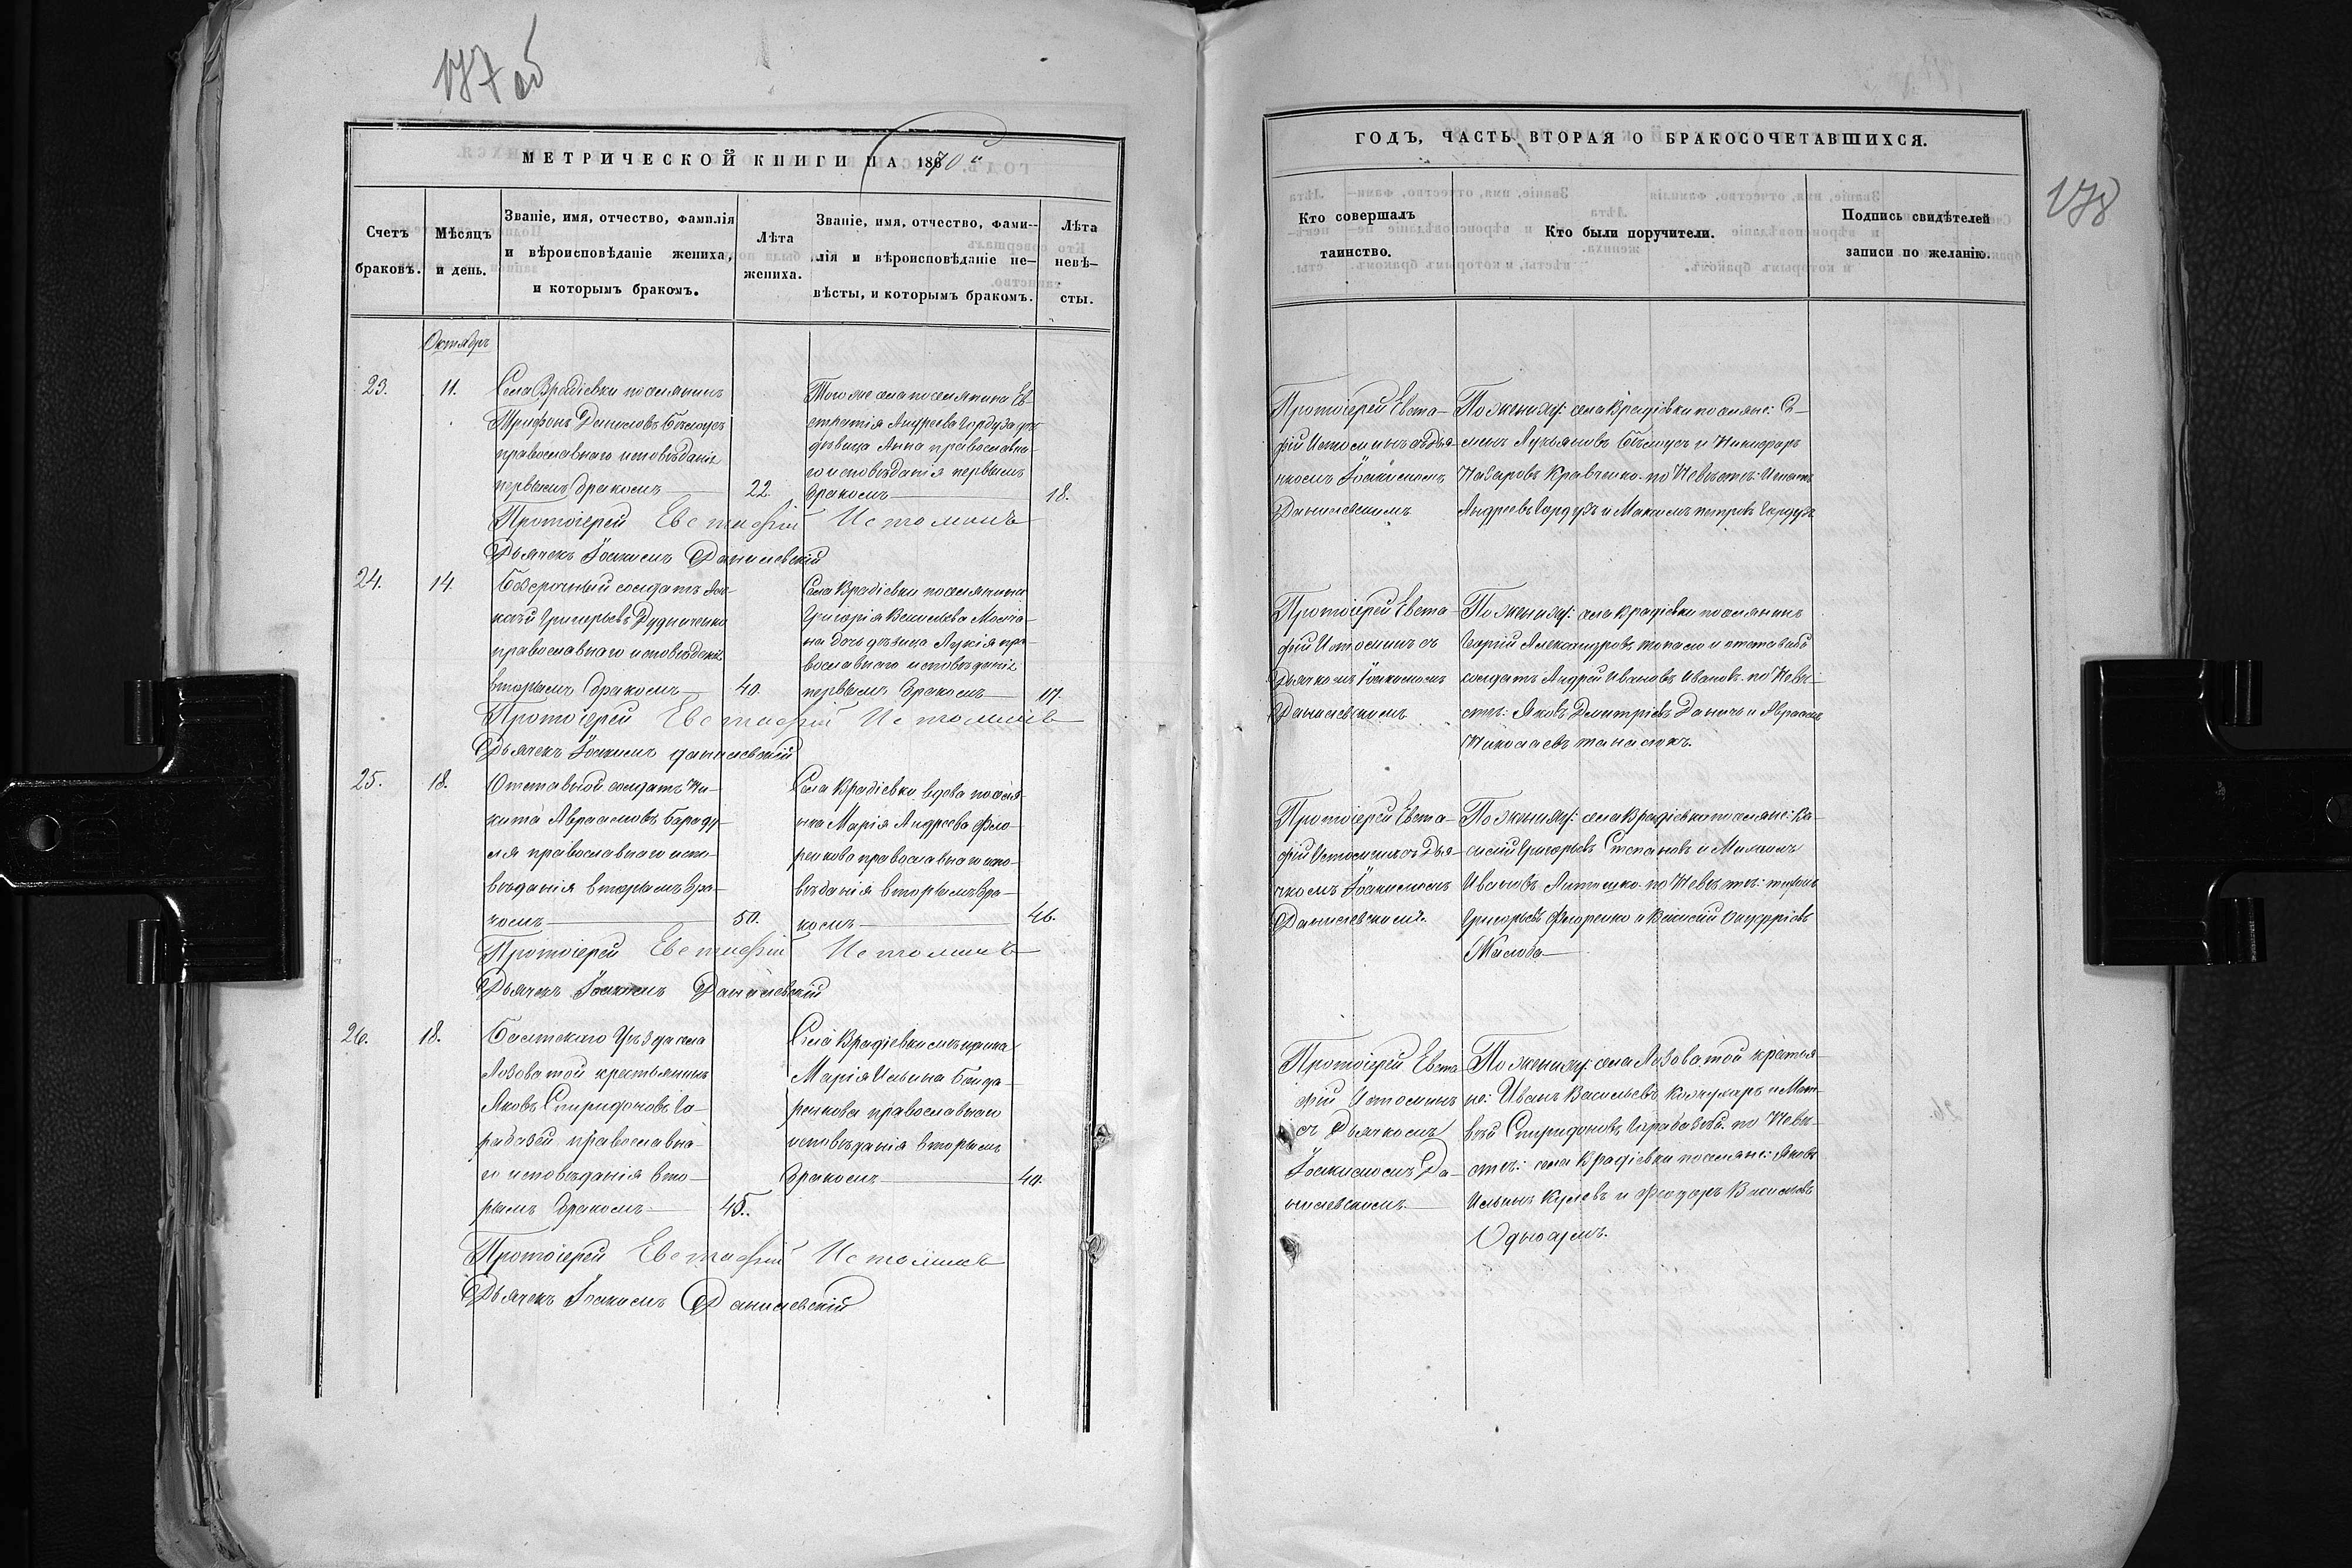 177 об
МЕТРИЧЕСКОЙ КНИГИ НА 1870
Счетъ браковъ.
Мѣсяцъ и день.
Званіе, имя, отчество, фамилія
и вѣроисповѣданіе жениха,
и которымъ бракомъ.
Лѣта
жениха.
Званіе, имя, отчество, фами-
лія и вѣроисповѣданіе не-
вѣсты, и которымъ бракомъ.
Лѣта
невѣ-
сты.
Октябрь
23.
11.
Села Врадіевки поселянинъ
Трифонъ Даниловъ Бѣлоусъ
православнаго исповѣданія
первымъ бракомъ
22.
Тогоже села поселянина Ев-
стратія Андреева
дѣвица Анна православна-
го исповѣданія первымъ
бракомъ
18.
Протоіерей Евстафій Истоминъ
Дьячекъ Іоакимъ Данилевскій
24.
14.
Безсрочный солдатъ
Григорьевъ Дудниченко
православнаго исповѣданія
вторымъ бракомъ
40.
Села Врадіевки поселянина
Григорія Васильева
дочь дѣвица Лукія пра-
вославнаго исповѣданія
первымъ бракомъ
17.
Протоіерей Евстафій Истоминъ
Дьячекъ Іоакимъ Данилевскій
25.
18.
Отставной солдатъ Ни-
кита Авраамовъ Бараду-
ля православнаго испо-
вѣданія вторымъ бра-
комъ
50.
Села Врадіевки вдова поселя-
нка Марія Андреева Фло-
ренкова православнаго испо-
вѣданія вторымъ бра-
комъ
46.
Протоіерей Евстафій Истоминъ
Дьячекъ Іоакимъ Данилевскій
26.
18.
Балтскаго Уѣзда села
Лозоватой крестьянинъ
Яковъ Спиридоновъ Га-
рабазей православна-
го исповѣданія вто-
рымъ бракомъ
45.
Села Врадіевки мѣщанка
Марія Ильина Бонда-
ренкова православнаго
исповѣданія вторымъ
бракомъ
40.
Протоіерей Евстафій Истоминъ
Дьячекъ Іоакимъ Данилевскій
178
ГОДЪ, ЧАСТЬ ВТОРАЯ О БРАКОСОЧЕТАВШИХСЯ.
Кто совершалъ
таинство.
Кто были поручители.
Подпись свидѣтелей
записи по желанію.
Протоіерей Евста-
фій Истоминъ съ дья-
чкомъ Іоакимомъ
Данилевскимъ
По женихѣ: села Врадіевки поселяне: Се-
менъ Лукьяновъ Бѣлоусъ и Никифоръ
Назаровъ Кравченко. по Невѣстѣ: Игнатъ
Андреевъ и Максимъ Петровъ
Протоіерей Евста-
фій Истоминъ съ
Дьячкомъ Іоакимомъ
Данилевскимъ
По женихѣ: села Врадіевки поселянинъ
Георгій Александровъ и отставной
солдатъ Андрей Ивановъ Ивановъ. по Невѣ-
стѣ: Яковъ Дмитріевъ и Авраамъ
Николаевъ Танасюкъ.
Протоіерей Евста-
фій Истоминъ съ Дья-
чкомъ Іоакимомъ
Данилевскимъ.
По женихѣ: села Врадіевки поселяне: Ва-
силій Григорьевъ Степановъ и
Ивановъ Антошко. по Невѣстѣ:
Григорьевъ Флоренко и Василій Онуфріевъ
Жалоба
Протоіерей Евста-
фій Истоминъ
съ Дьячкомъ
Іоакимомъ Да-
нилевскимъ.
По женихѣ: села Лозоватой крестья-
не: Иванъ Васильевъ и Мат-
вѣй Спиридоновъ Гарабазей. по Невѣ-
стѣ: села Врадіевки поселяне: Яковъ
Ильинъ и Феодоръ